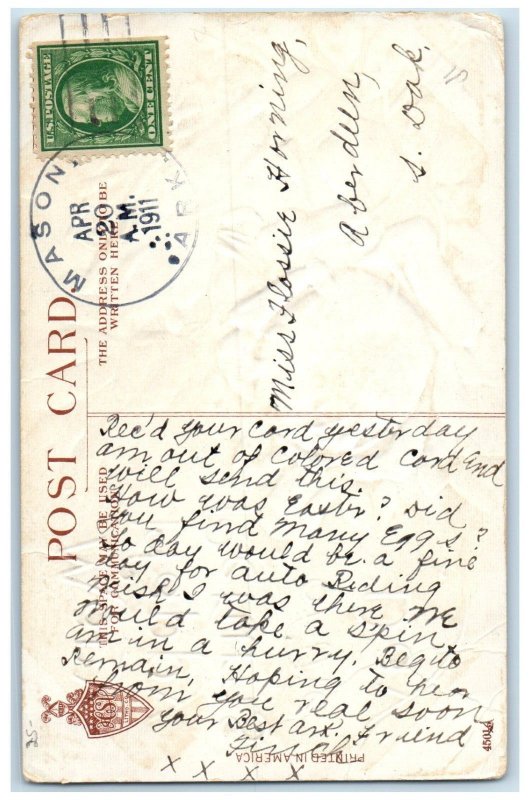 U.S. POSTAGE
ONE CENT
MASON,
ARK.
APR
20
A.M.
1911
POST CARD
THE ADDRESS ONLY TO BE
WRITTEN HERE
THIS SPACE MAY BE USED
FOR COMMUNICATION
Miss Flossie Horning,
Aberdeen,
S. Dak.
Rec'd your card yesterday
am out of colored card and
will send this.
How was Easter? Did
you find many Eggs?
to day would be a fine
day for auto Riding
Wish I was there we
would take a spin,
am in a hurry. Beg to
remain, Hoping to hear
from you real soon
Your Best Friend
x x x x
PRINTED IN AMERICA
25-